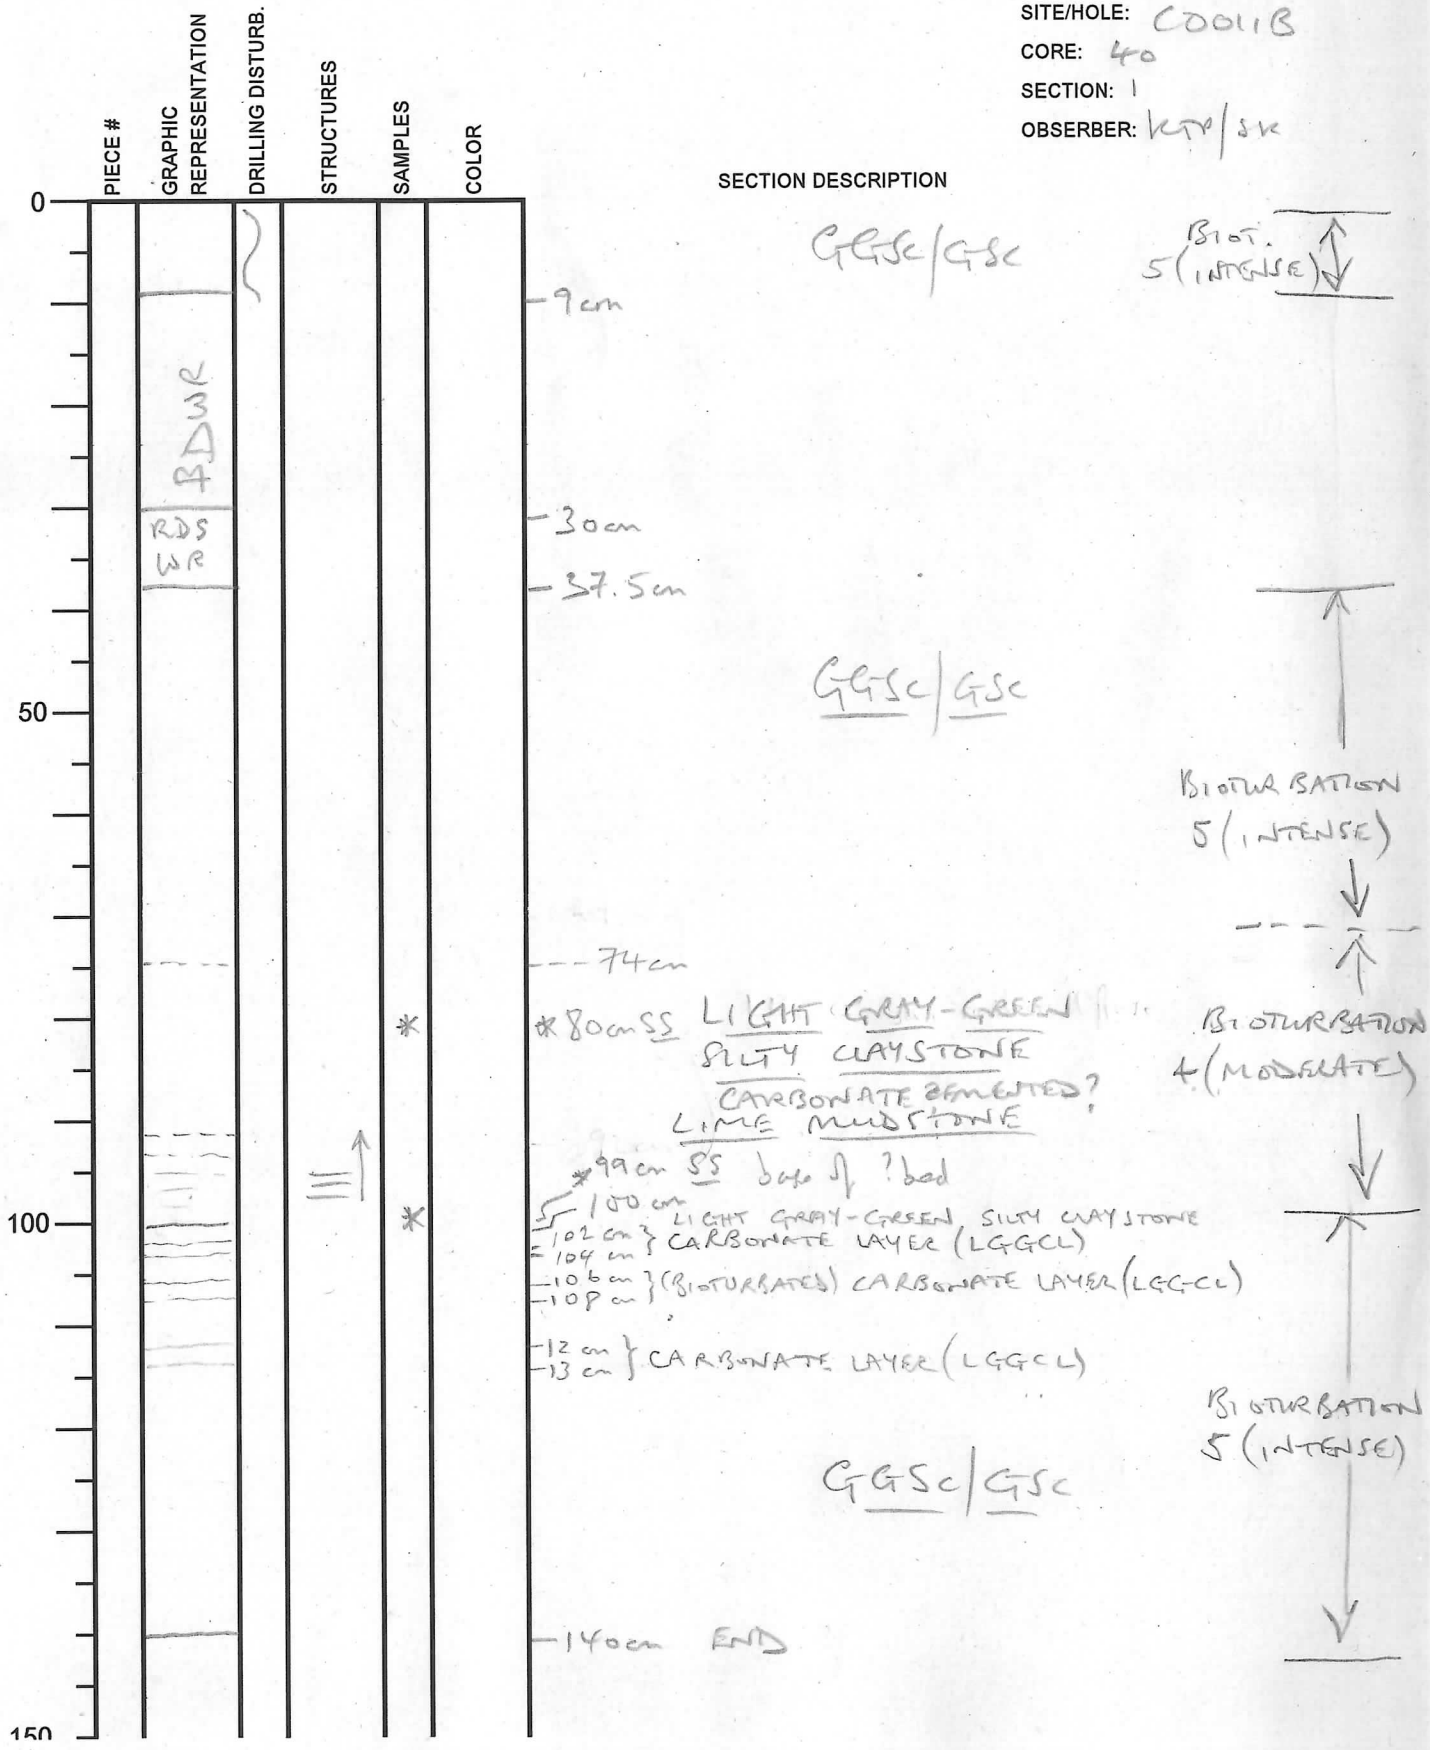 SITE/HOLE: C0011B
CORE: 40
SECTION: 1
OBSERBER: KTP/SK
PIECE #
GRAPHIC
REPRESENTATION
DRILLING DISTURB.
STRUCTURES
SAMPLES
COLOR
SECTION DESCRIPTION
0
GGSc/GSc
BIOT.
5 (INTENSE)
9cm
WR
30cm
RDS
WR
37.5cm
GGSc/GSc
50
BIOTURBATION
5 (INTENSE)
74cm
* *80cm SS LIGHT GRAY-GREEN
SILTY CLAYSTONE
CARBONATE CEMENTED?
LIME MUDSTONE
BIOTURBATION
4 (MODERATE)
*99cm SS base of ?bed
100 cm
100
*
LIGHT GRAY-GREEN, SILTY CLAYSTONE
102 cm } CARBONATE LAYER (LGGCL)
104 cm
106 cm } (BIOTURBATED) CARBONATE LAYER (LGGCL)
108 cm
12 cm } CARBONATE LAYER (LGGCL)
13 cm
BIOTURBATION
5 (INTENSE)
GGSc/GSc
140cm END
150